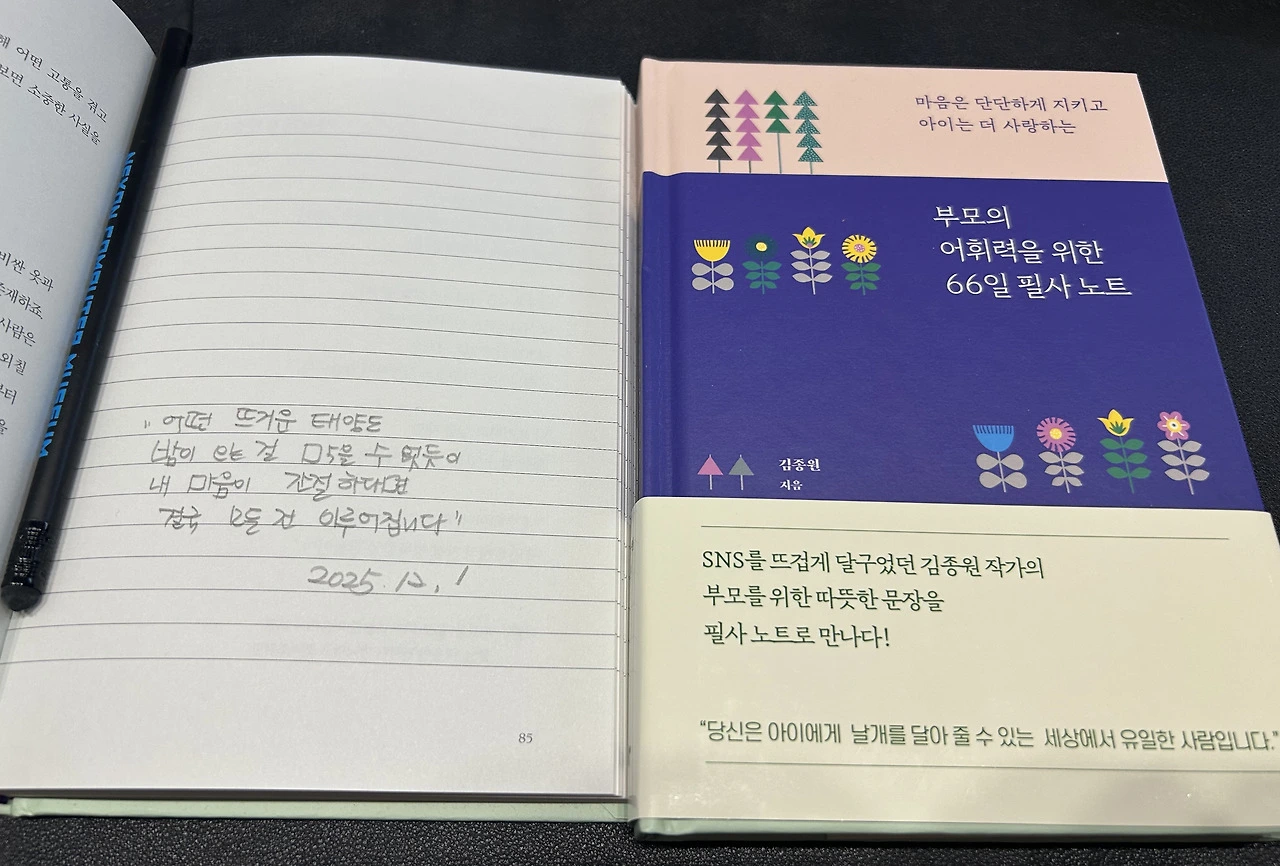 해 어떤 고통을 겪고
보면 소중한 사실을
비싼 옷과
존재하죠
사람은
외칠
부터
을
NEXON COMPUTER MUSEUM
"어떤 뜨거운 태양도
밤이 오는 걸 막을 수 없듯이
내 마음이 간절하다면
결국 모든 건 이루어집니다"
2025. 12. 1
85
마음은 단단하게 지키고
아이는 더 사랑하는
부모의
어휘력을 위한
66일 필사 노트
김종원
지음
SNS를 뜨겁게 달구었던 김종원 작가의
부모를 위한 따뜻한 문장을
필사 노트로 만나다!
“당신은 아이에게 날개를 달아 줄 수 있는 세상에서 유일한 사람입니다.”